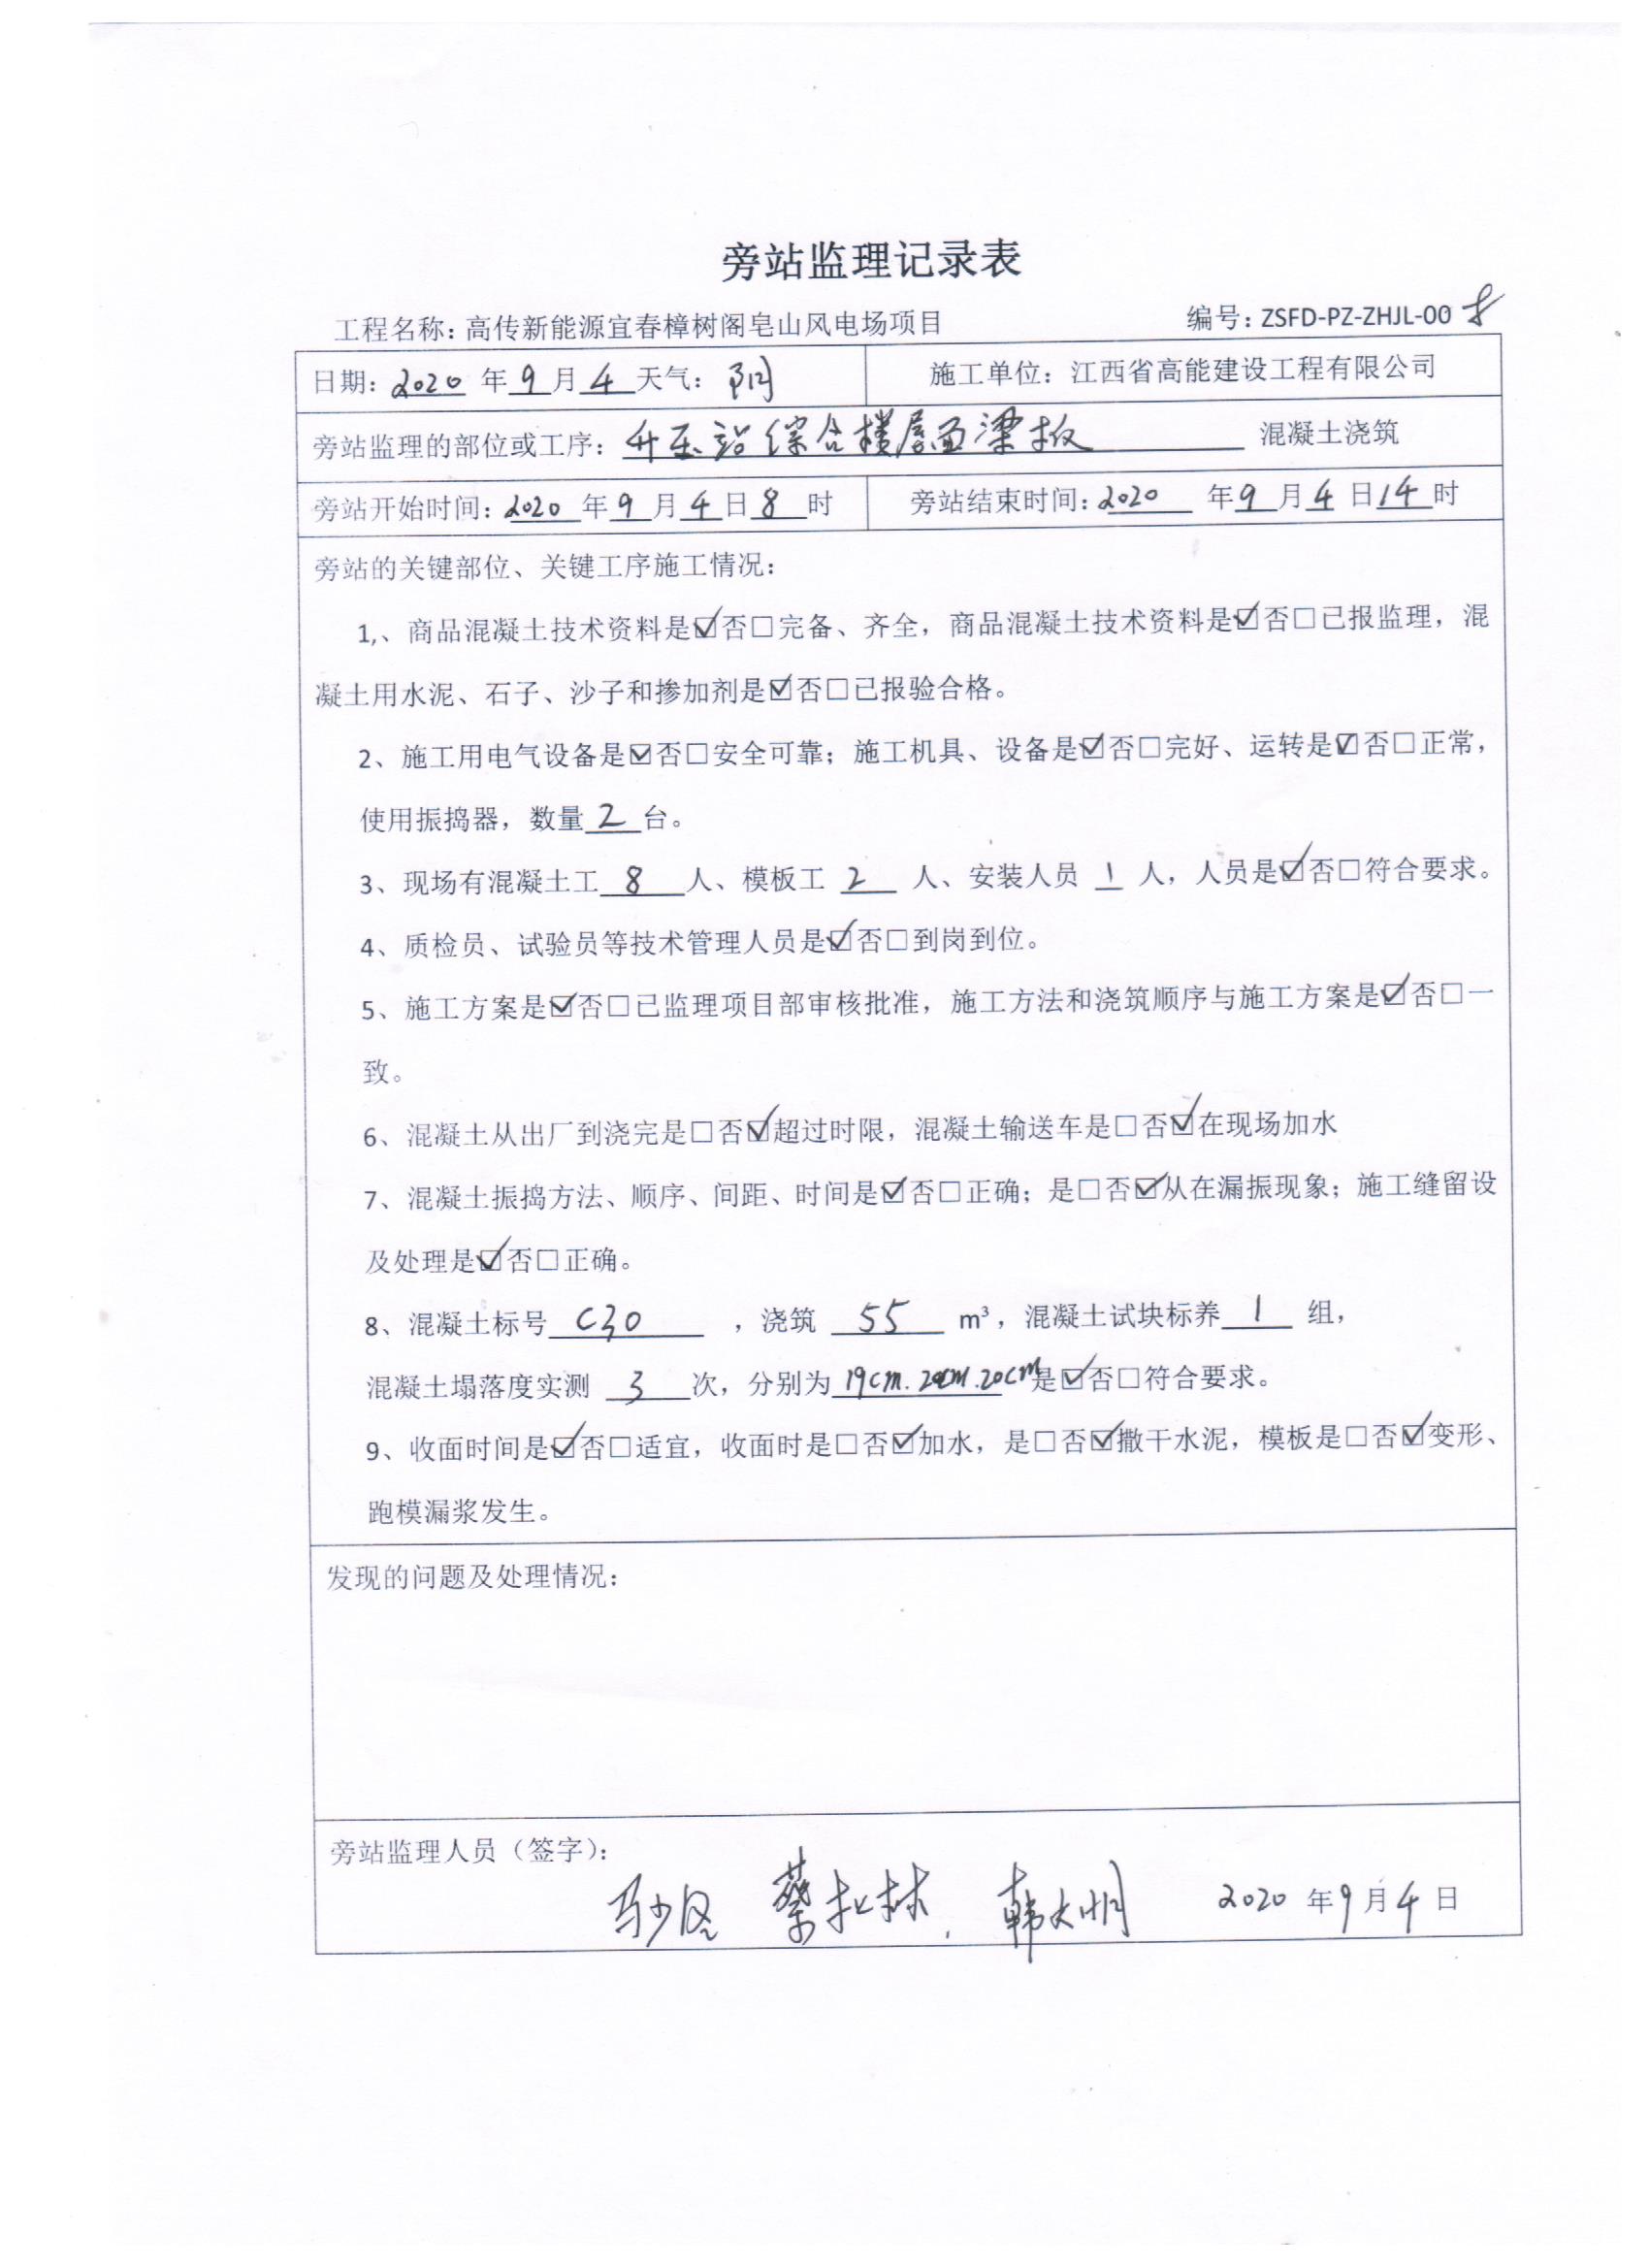 旁站监理记录表
工程名称：高传新能源宜春樟树阁皂山风电场项目 编号：ZSFD-PZ-ZHJL-00
日期：2020 年 9 月 4 天气：阴 施工单位：江西省高能建设工程有限公司
旁站监理的部位或工序：升压站综合楼屋面梁板 混凝土浇筑
旁站开始时间：2020 年 9 月 4 日 8 时 旁站结束时间：2020 年 9 月 4 日 14 时
旁站的关键部位、关键工序施工情况：
1,、商品混凝土技术资料是☑否□完备、齐全，商品混凝土技术资料是☑否□已报监理，混
凝土用水泥、石子、沙子和掺加剂是☑否□已报验合格。
2、施工用电气设备是☑否□安全可靠；施工机具、设备是☑否□完好、运转是☑否□正常，
使用振捣器，数量 2 台。
3、现场有混凝土工 8 人、模板工 2 人、安装人员 1 人，人员是☑否□符合要求。
4、质检员、试验员等技术管理人员是☑否□到岗到位。
5、施工方案是☑否□已监理项目部审核批准，施工方法和浇筑顺序与施工方案是☑否□一
致。
6、混凝土从出厂到浇完是□否☑超过时限，混凝土输送车是□否☑在现场加水
7、混凝土振捣方法、顺序、间距、时间是☑否□正确；是□否☑从在漏振现象；施工缝留设
及处理是☑否□正确。
8、混凝土标号 C30 ，浇筑 55 m³，混凝土试块标养 1 组，
混凝土塌落度实测 3 次，分别为 19cm.20cm.20cm是☑否□符合要求。
9、收面时间是☑否□适宜，收面时是□否☑加水，是□否☑撒干水泥，模板是□否☑变形、
跑模漏浆发生。
发现的问题及处理情况：
旁站监理人员（签字）：
韩大明 2020 年 9 月 4 日